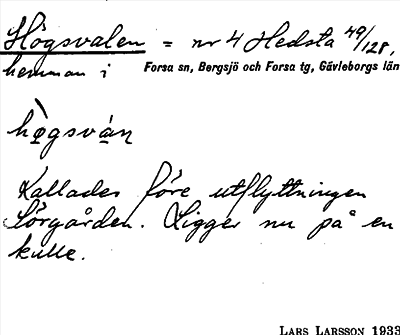 Högsvalen = nr 4 Hedsta 49/128,
hemman i Forsa sn, Bergsjö och Forsa tg, Gävleborgs län
hø̀gsvá̱n
Kallades före utflyttningen
Sörgården. Ligger nu på en
kulle.
LARS LARSSON 1933